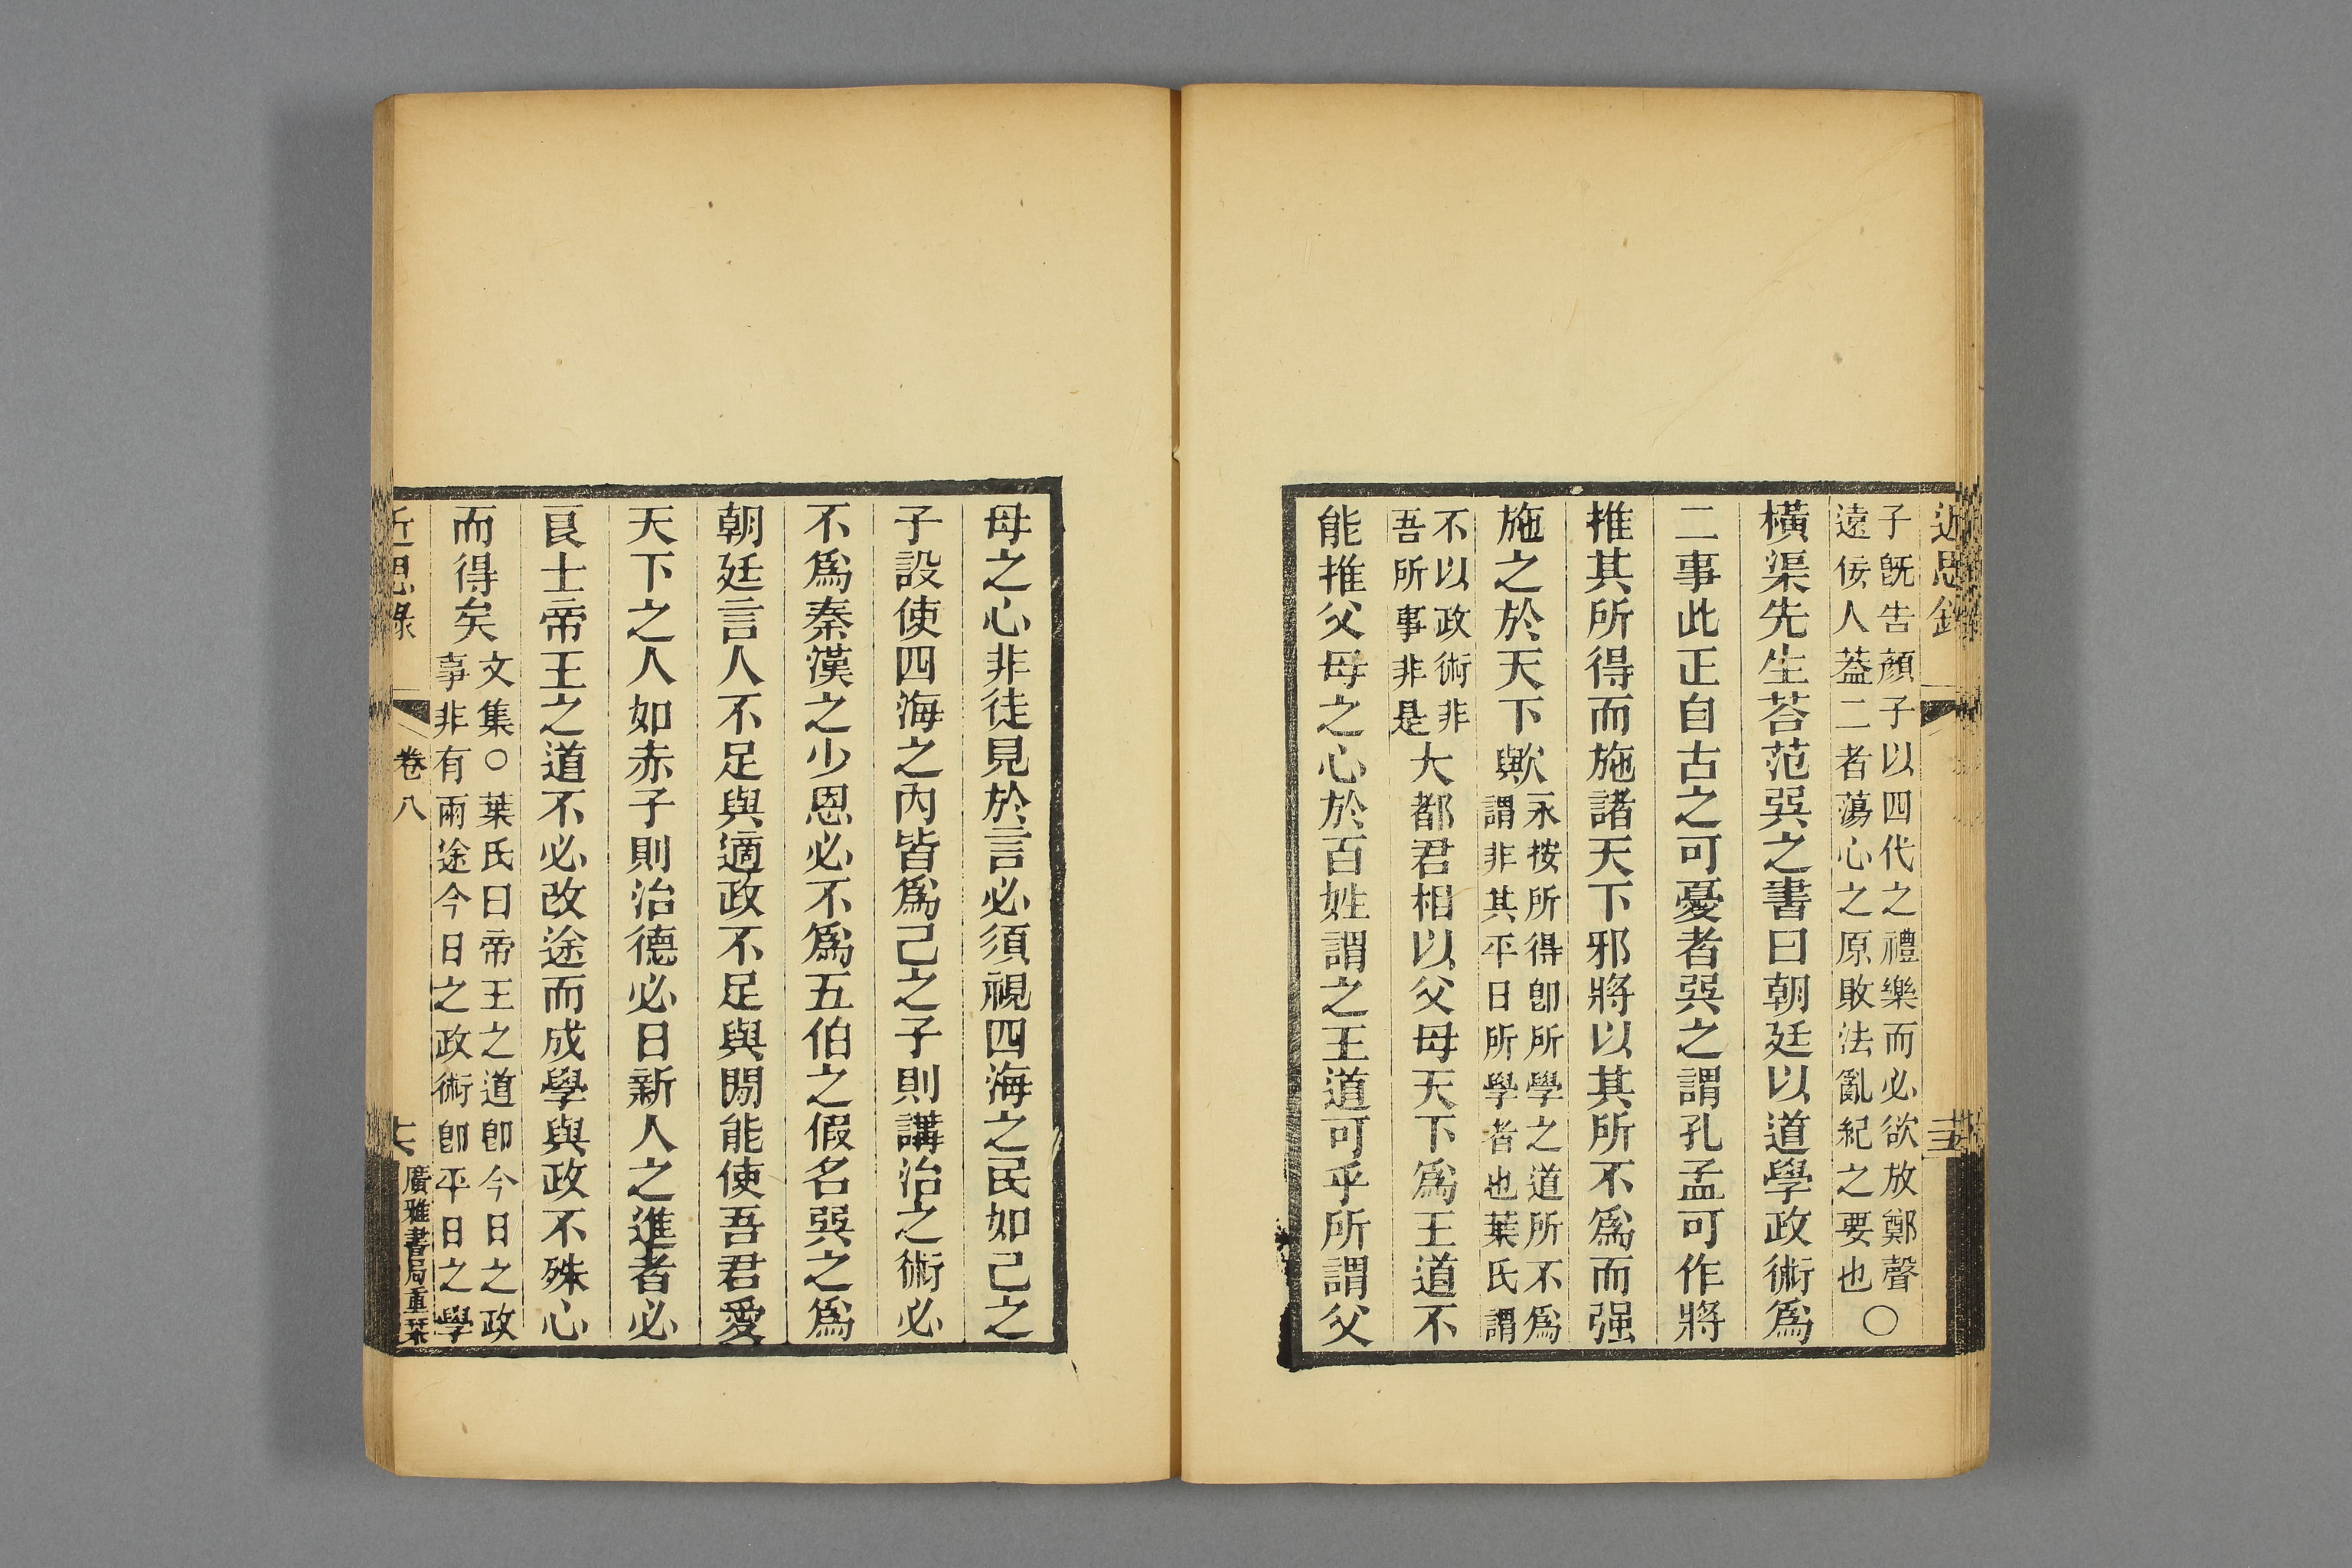 近思錄
子旣吿顔子以四代之禮樂而必欲放鄭聲
遠佞人葢二者蕩心之原敗法亂紀之要也
○
橫渠先生荅范巽之書曰朝廷以道學政術爲
二事此正自古之可憂者巽之謂孔孟可作將
推其所得而施諸天下邪將以其所不爲而强
施之於天下歟
永按所得卽所學之道所不爲
謂非其平日所學者也葉氏謂
不以政術非
吾所事非是
大都君相以父母天下爲王道不
能推父母之心於百姓謂之王道可乎所謂父
母之心非徒見於言必須視四海之民如己之
子設使四海之內皆爲己之子則講治之術必
不爲秦漢之少恩必不爲五伯之假名巽之爲
朝廷言人不足與適政不足與閒能使吾君愛
天下之人如赤子則治德必日新人之進者必
良士帝王之道不必改途而成學與政不殊心
而得矣
文集○葉氏曰帝王之道卽今日之政
事非有兩途今日之政術卽平日之學
近思錄
卷八
廣雅書局重栞